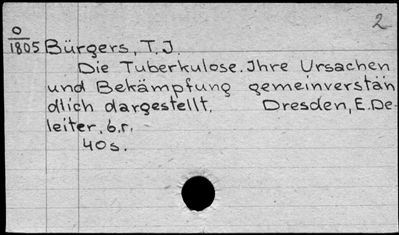 2
O
1805 Bürgers, T.J.
Die Tuberkulose. Ihre Ursachen
und Bekämpfung gemeinverstän
dlich dargestellt. Dresden, E.De
leiter, б.г.
40s.